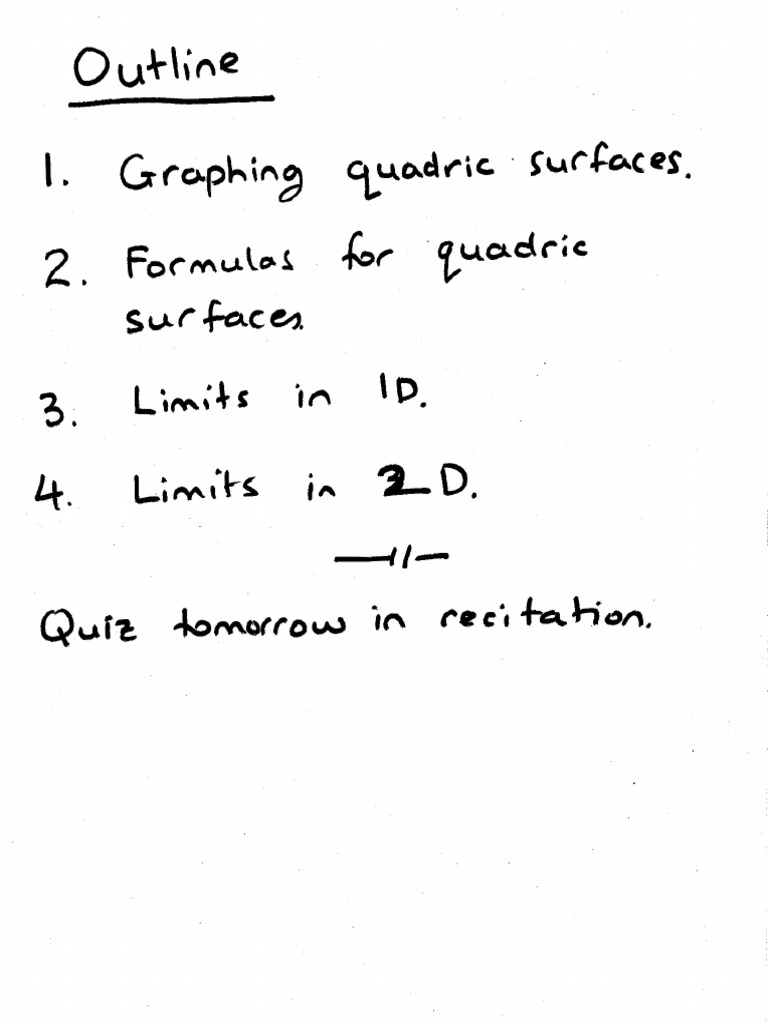 Outline
1. Graphing quadric surfaces.
2. Formulas for quadric
surfaces.
3. Limits in 1D.
4. Limits in 2D.
Quiz tomorrow in recitation.